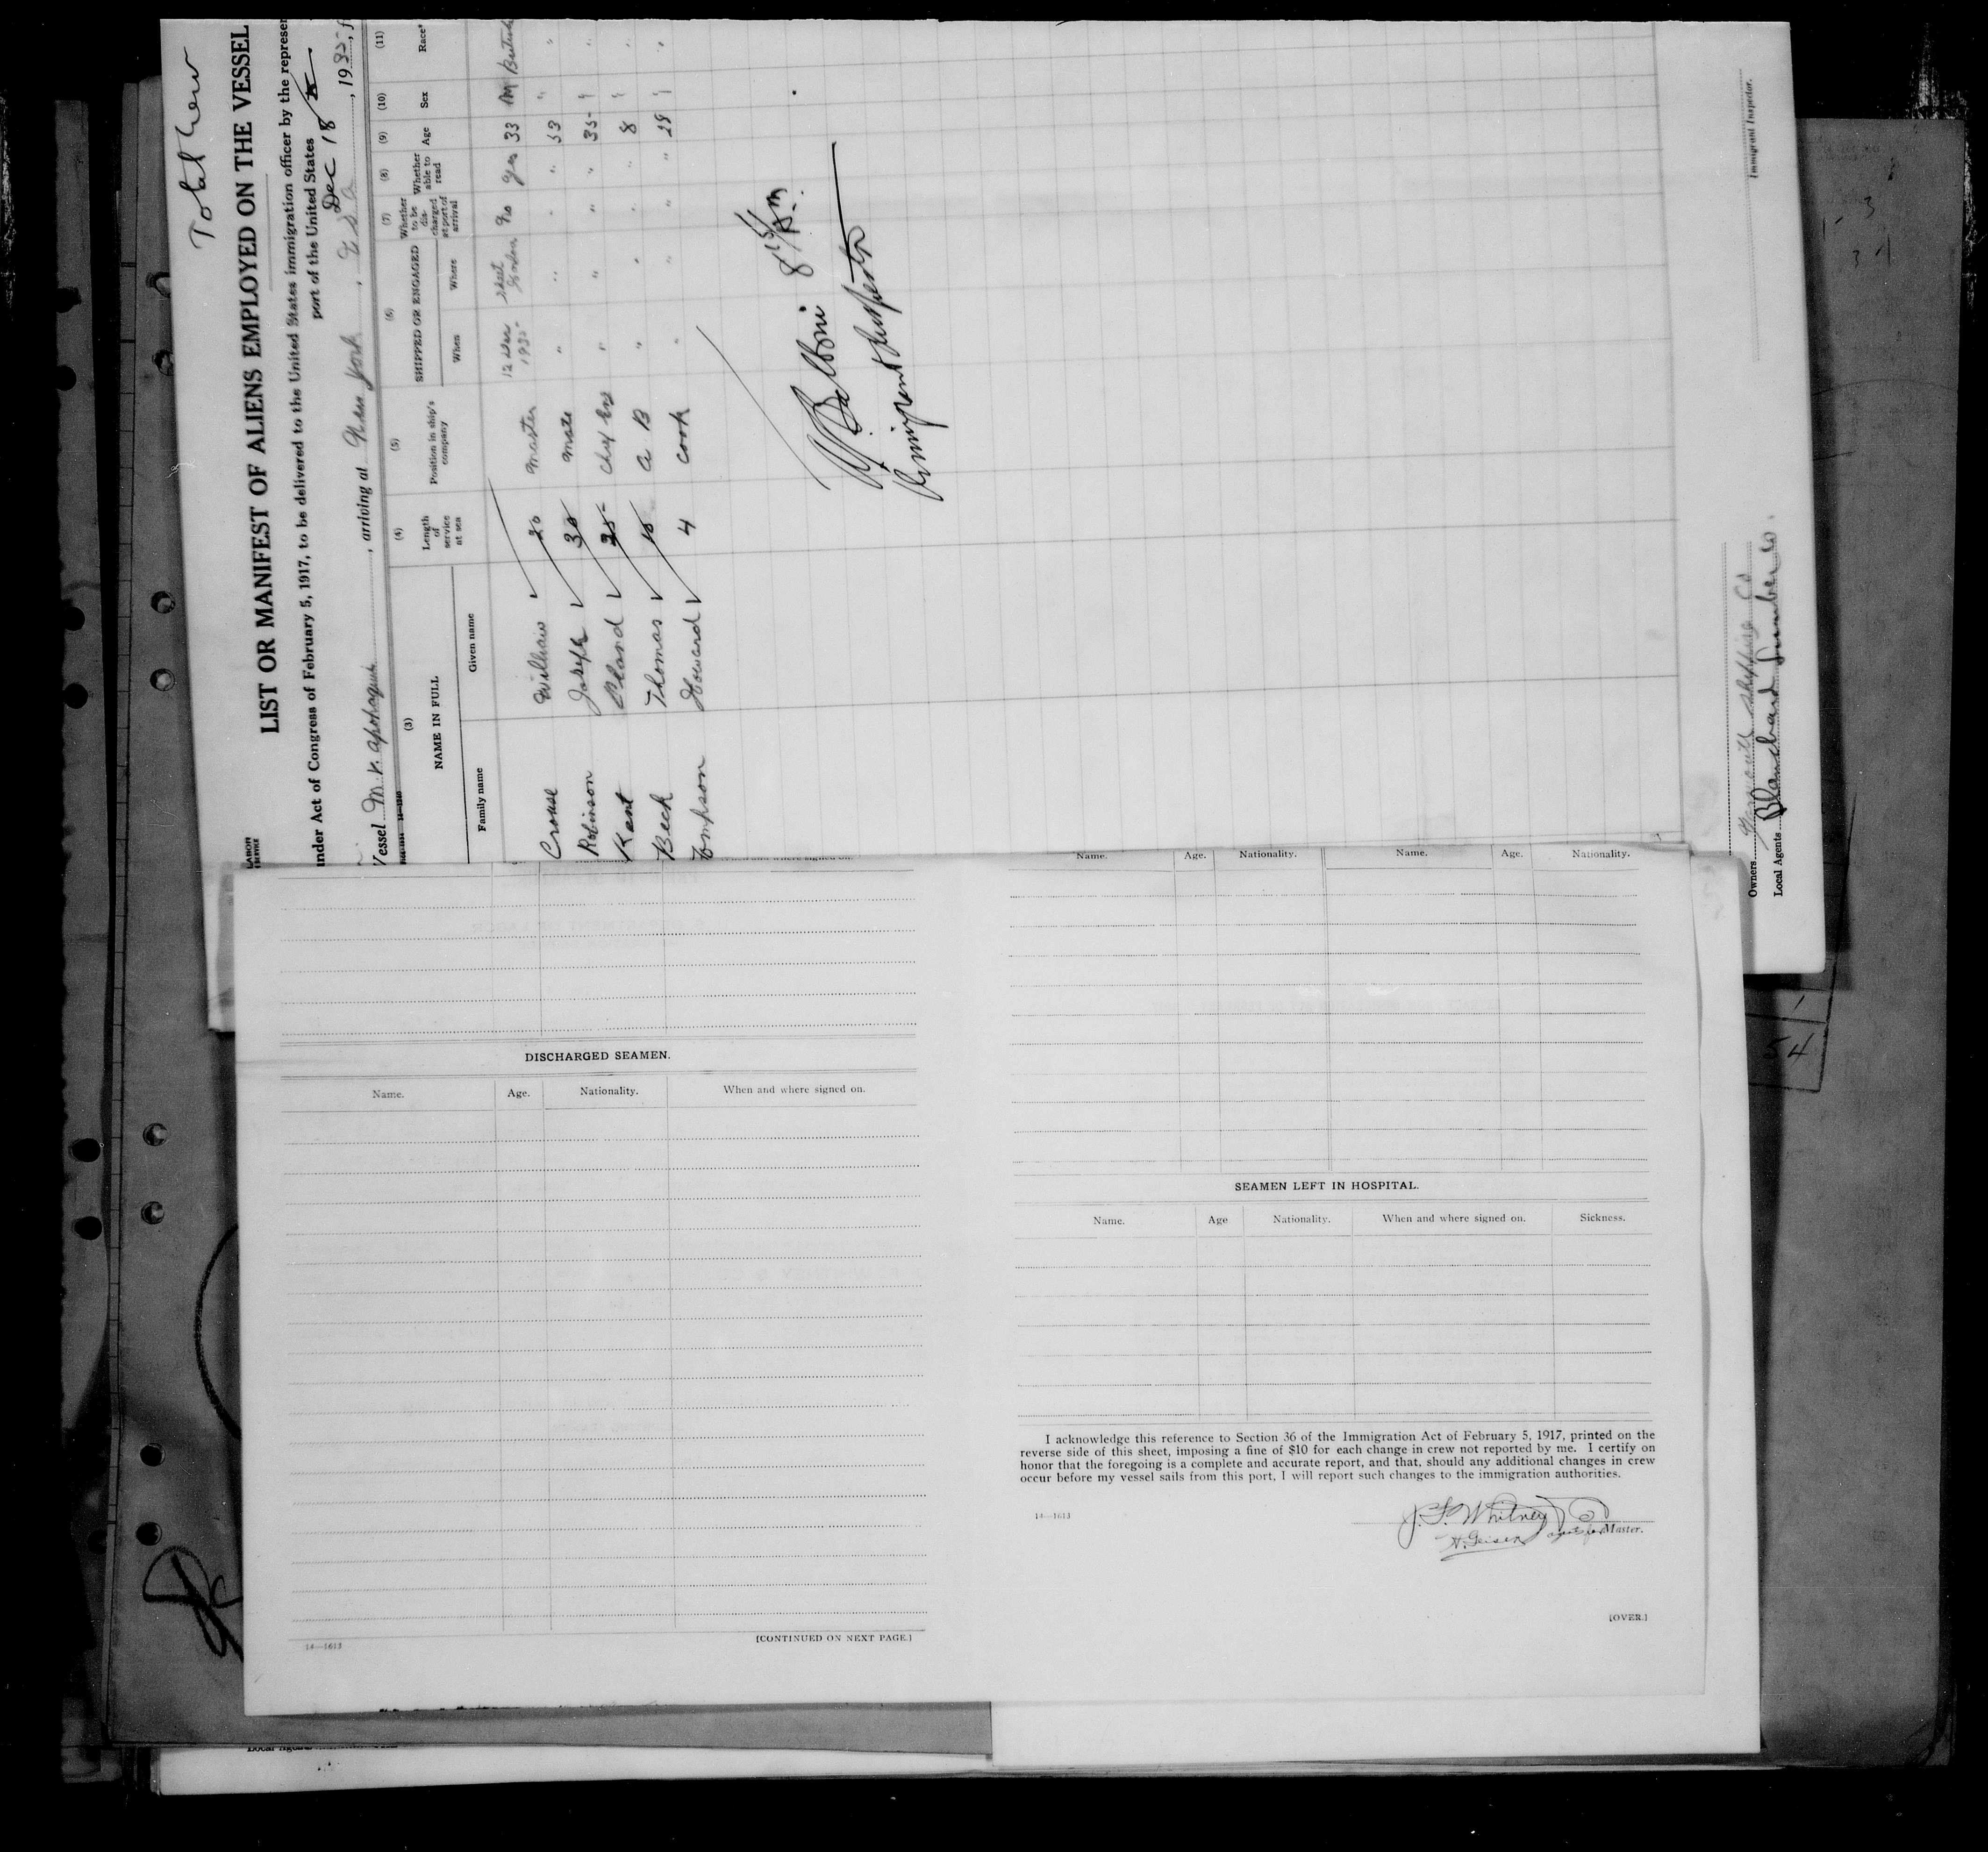 Total Crew
LIST OR MANIFEST OF ALIENS EMPLOYED ON THE VESSEL
under Act of Congress of February 5, 1917, to be delivered to the United States immigration officer by the represen
port of the United States
Dec 18
Vessel M.V. , arriving at New York, U.S.A., 1935
(3) (4) (5) (6) (7) (8) (9) (10) (11)
NAME IN FULL Length of service at sea Position in ship's company SHIPPED OR ENGAGED Whether to be discharged at port of arrival Whether able to read Age Sex Race*
Family name Given name When Where
Crouse William 20 Master 12 Dec 1935 No yes 33 M British
Robinson Joseph 30 Mate " " " " 53 " "
Kent 25 Chief Eng " " " " 35 " "
Beck Thomas 10 A B " " " " 8 " "
Tompson Howard 4 Cook " " " " 29 " "
8 15/ Am
Immigrant Inspector
Immigrant Inspector.
Owners Yarmouth Shipping Co
Local Agents Blanchard Lumber Co.
Name. Age. Nationality. Name. Age. Nationality.
DISCHARGED SEAMEN.
Name. Age. Nationality. When and where signed on.
14—1613
[CONTINUED ON NEXT PAGE.]
SEAMEN LEFT IN HOSPITAL.
Name. Age Nationality. When and where signed on. Sickness.
I acknowledge this reference to Section 36 of the Immigration Act of February 5, 1917, printed on the
reverse side of this sheet, imposing a fine of $10 for each change in crew not reported by me. I certify on
honor that the foregoing is a complete and accurate report, and that, should any additional changes in crew
occur before my vessel sails from this port, I will report such changes to the immigration authorities.
14—1613
J. F. Whitney Co
H. Geisen agents for Master.
[OVER.]